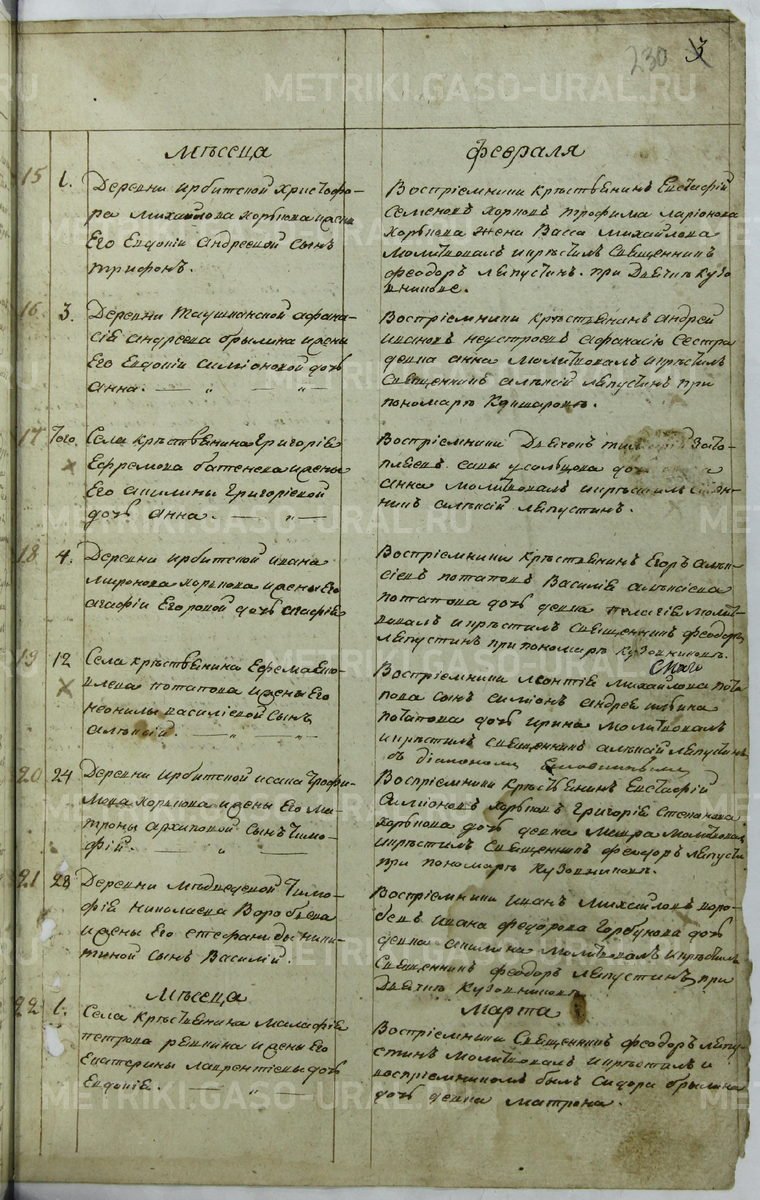 METRIKI.GASO-URAL.RU
230 3
Мѣсеца
февраля
15 1. Деревни ирбитской христофо-
ра михайлова хорькова и жены
Его Евдокiи Андреевой сынъ
трифонъ.
Восприемники крѣстьянинъ Евстафiй
Семеновъ хорковъ трофима ларiонова
хорькова жена Васса михайлова
молитвовалъ и крѣстилъ священникъ
феодоръ ляпустинъ. при Дьячкѣ кузо
вникове.
16. 3. Деревни таушканской афана-
сiя андреева брылина и жены
Его Евдокiи симiоновой дочь
анна.
Восприемники крѣстьянинъ андрей
ивановъ неустроевъ афанасию сестра
девка анна молитвовалъ и крѣстилъ
священникъ алѣксiй ляпустинъ при
пономарѣ
17 Того. Села крѣстьянина григорiя
Ефремова батенева и жены
Его акилины григорiевой
дочь анна.
Восприемники Дьячокъ
дочь
анна молитвовалъ и крѣстилъ священ-
никъ алѣксiй ляпустинъ.
18 4. Деревни ирбитской ивана
миронова хорькова и жены Его
агафiи Егоровой дочь агафiя
Восприемники крѣстьянинъ Егоръ алѣк-
сiевъ потаповъ Василiя алѣксiева
потапова дочь девка пелагiя молит-
вовалъ и крѣстилъ священникъ феодоръ
ляпустинъ при пономарѣ кузовниковѣ.
19 12 Села крѣстьянина Ефема
потапова и жены Его
неонилы василiевой сынъ
алѣксiй.
Восприемники леонтiя михайлова пота
пова сынъ симiонъ андрея ильина
потапова дочь ирина молитвовалъ
и крѣстилъ священникъ алѣксiй ляпустинъ
съ дiакономъ
20 24 Деревни ирбитской исака трофи-
мова хорькова и жены Его ма-
троны архиповой сынъ тимо-
фiй.
Восприемники крѣстьянинъ Евстафiй
симiоновъ хорьковъ григорiя степанова
хорькова дочь девка мавра молитвовалъ
и крѣстилъ священникъ феодоръ ляпусти
при пономарѣ кузовниковѣ.
21 28 Деревни мѣдведевской тимо-
фiя николаева воробьева
и жены Его стефаниды ники-
тиной сынъ василiй.
Восприемники иванъ михайловъ воро-
бевъ ивана федорова горбунова дочь
девка акилина молитвовалъ и крѣстилъ
священникъ феодоръ ляпустинъ при
Дьячкѣ кузовниковѣ
Мѣсеца
марта
22 1. Села крѣстьянина малафiя
петрова речкина и жены Его
Екатерины лаврентiевы дочь
Евдокiя.
Восприемники священникъ феодоръ ляпу-
стинъ молитвовалъ и крѣстилъ и
восприемникомъ былъ сидора брылина
дочь девка матрона.
METRIKI.GASO-URAL.RU